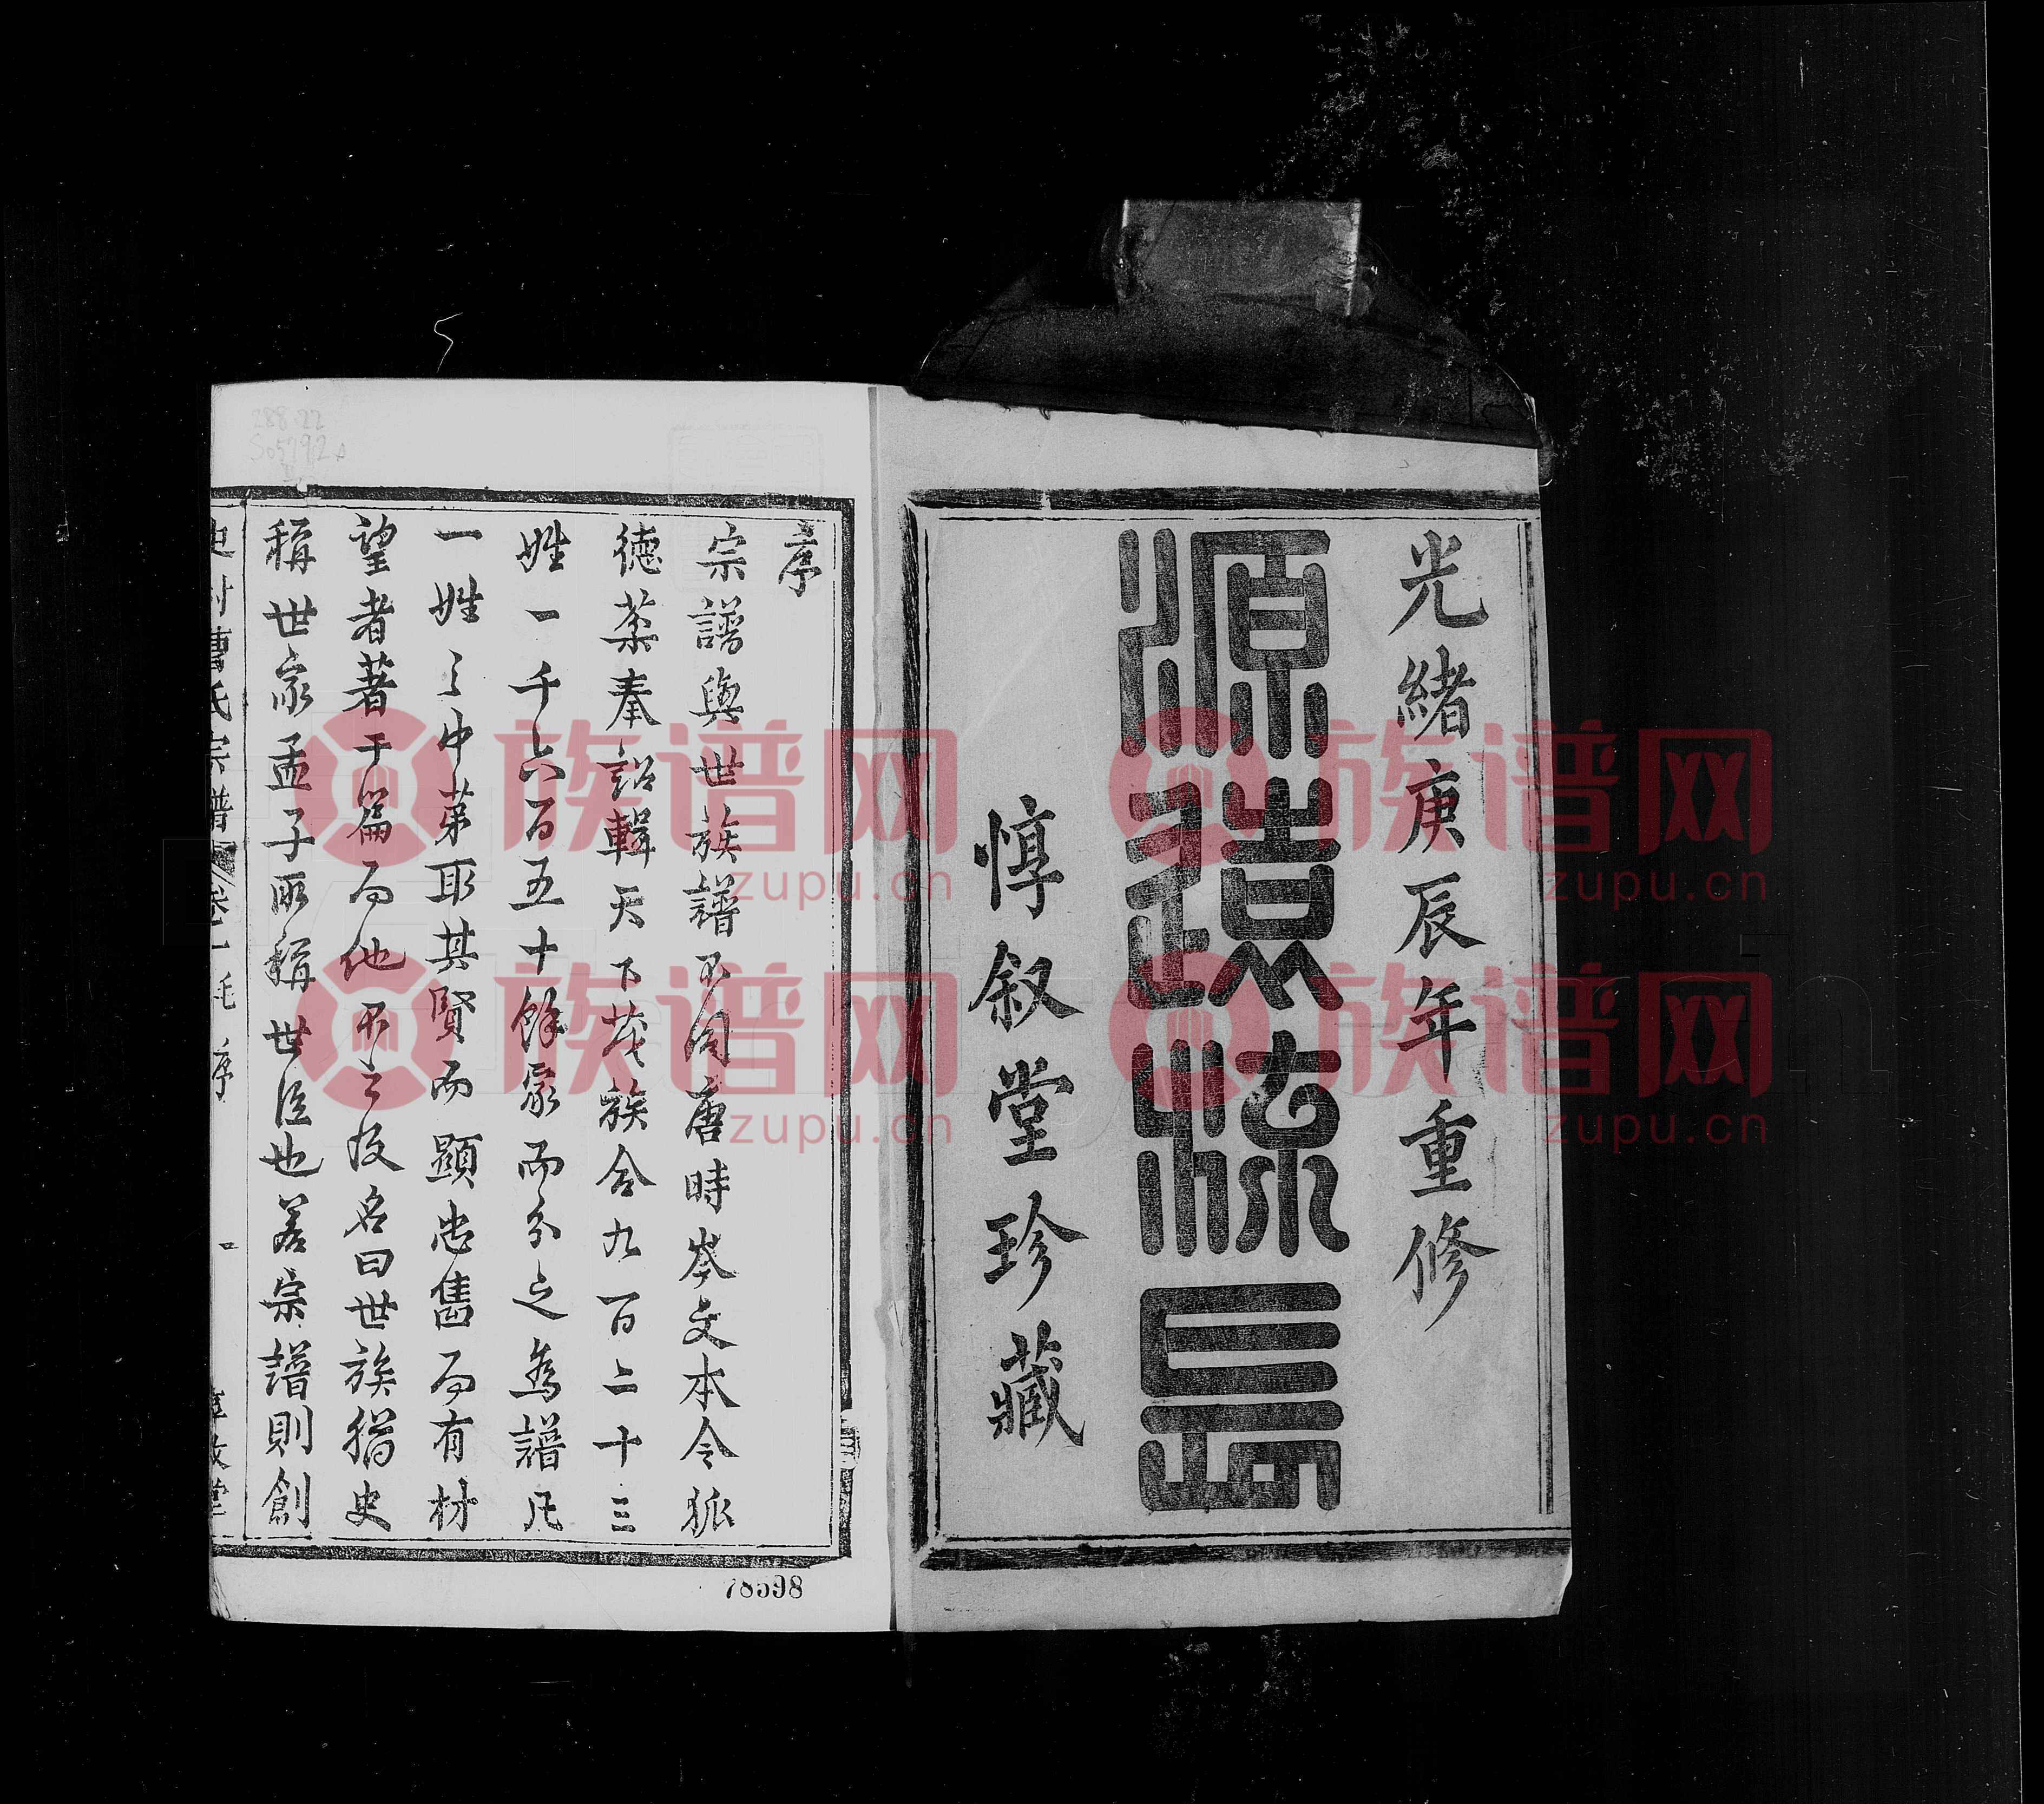 光緒庚辰年重修
源遠流長
惇叙堂珍藏
序
宗譜與世族譜不同唐時岑文本令狐
德棻奉詔輯天下茂族合九百二十三
姓一千六百五十餘家而分之為譜凡
一姓之中第取其賢而顯忠舊而有材
望者著于篇而他不之及名曰世族猶史
稱世家孟子所稱世臣也若宗譜則創
曹氏宗譜 卷一 序 一
78598
288.22
族谱网
zupu.cn
族谱网
zupu.cn
族谱网
zupu.cn
族谱网
zupu.cn